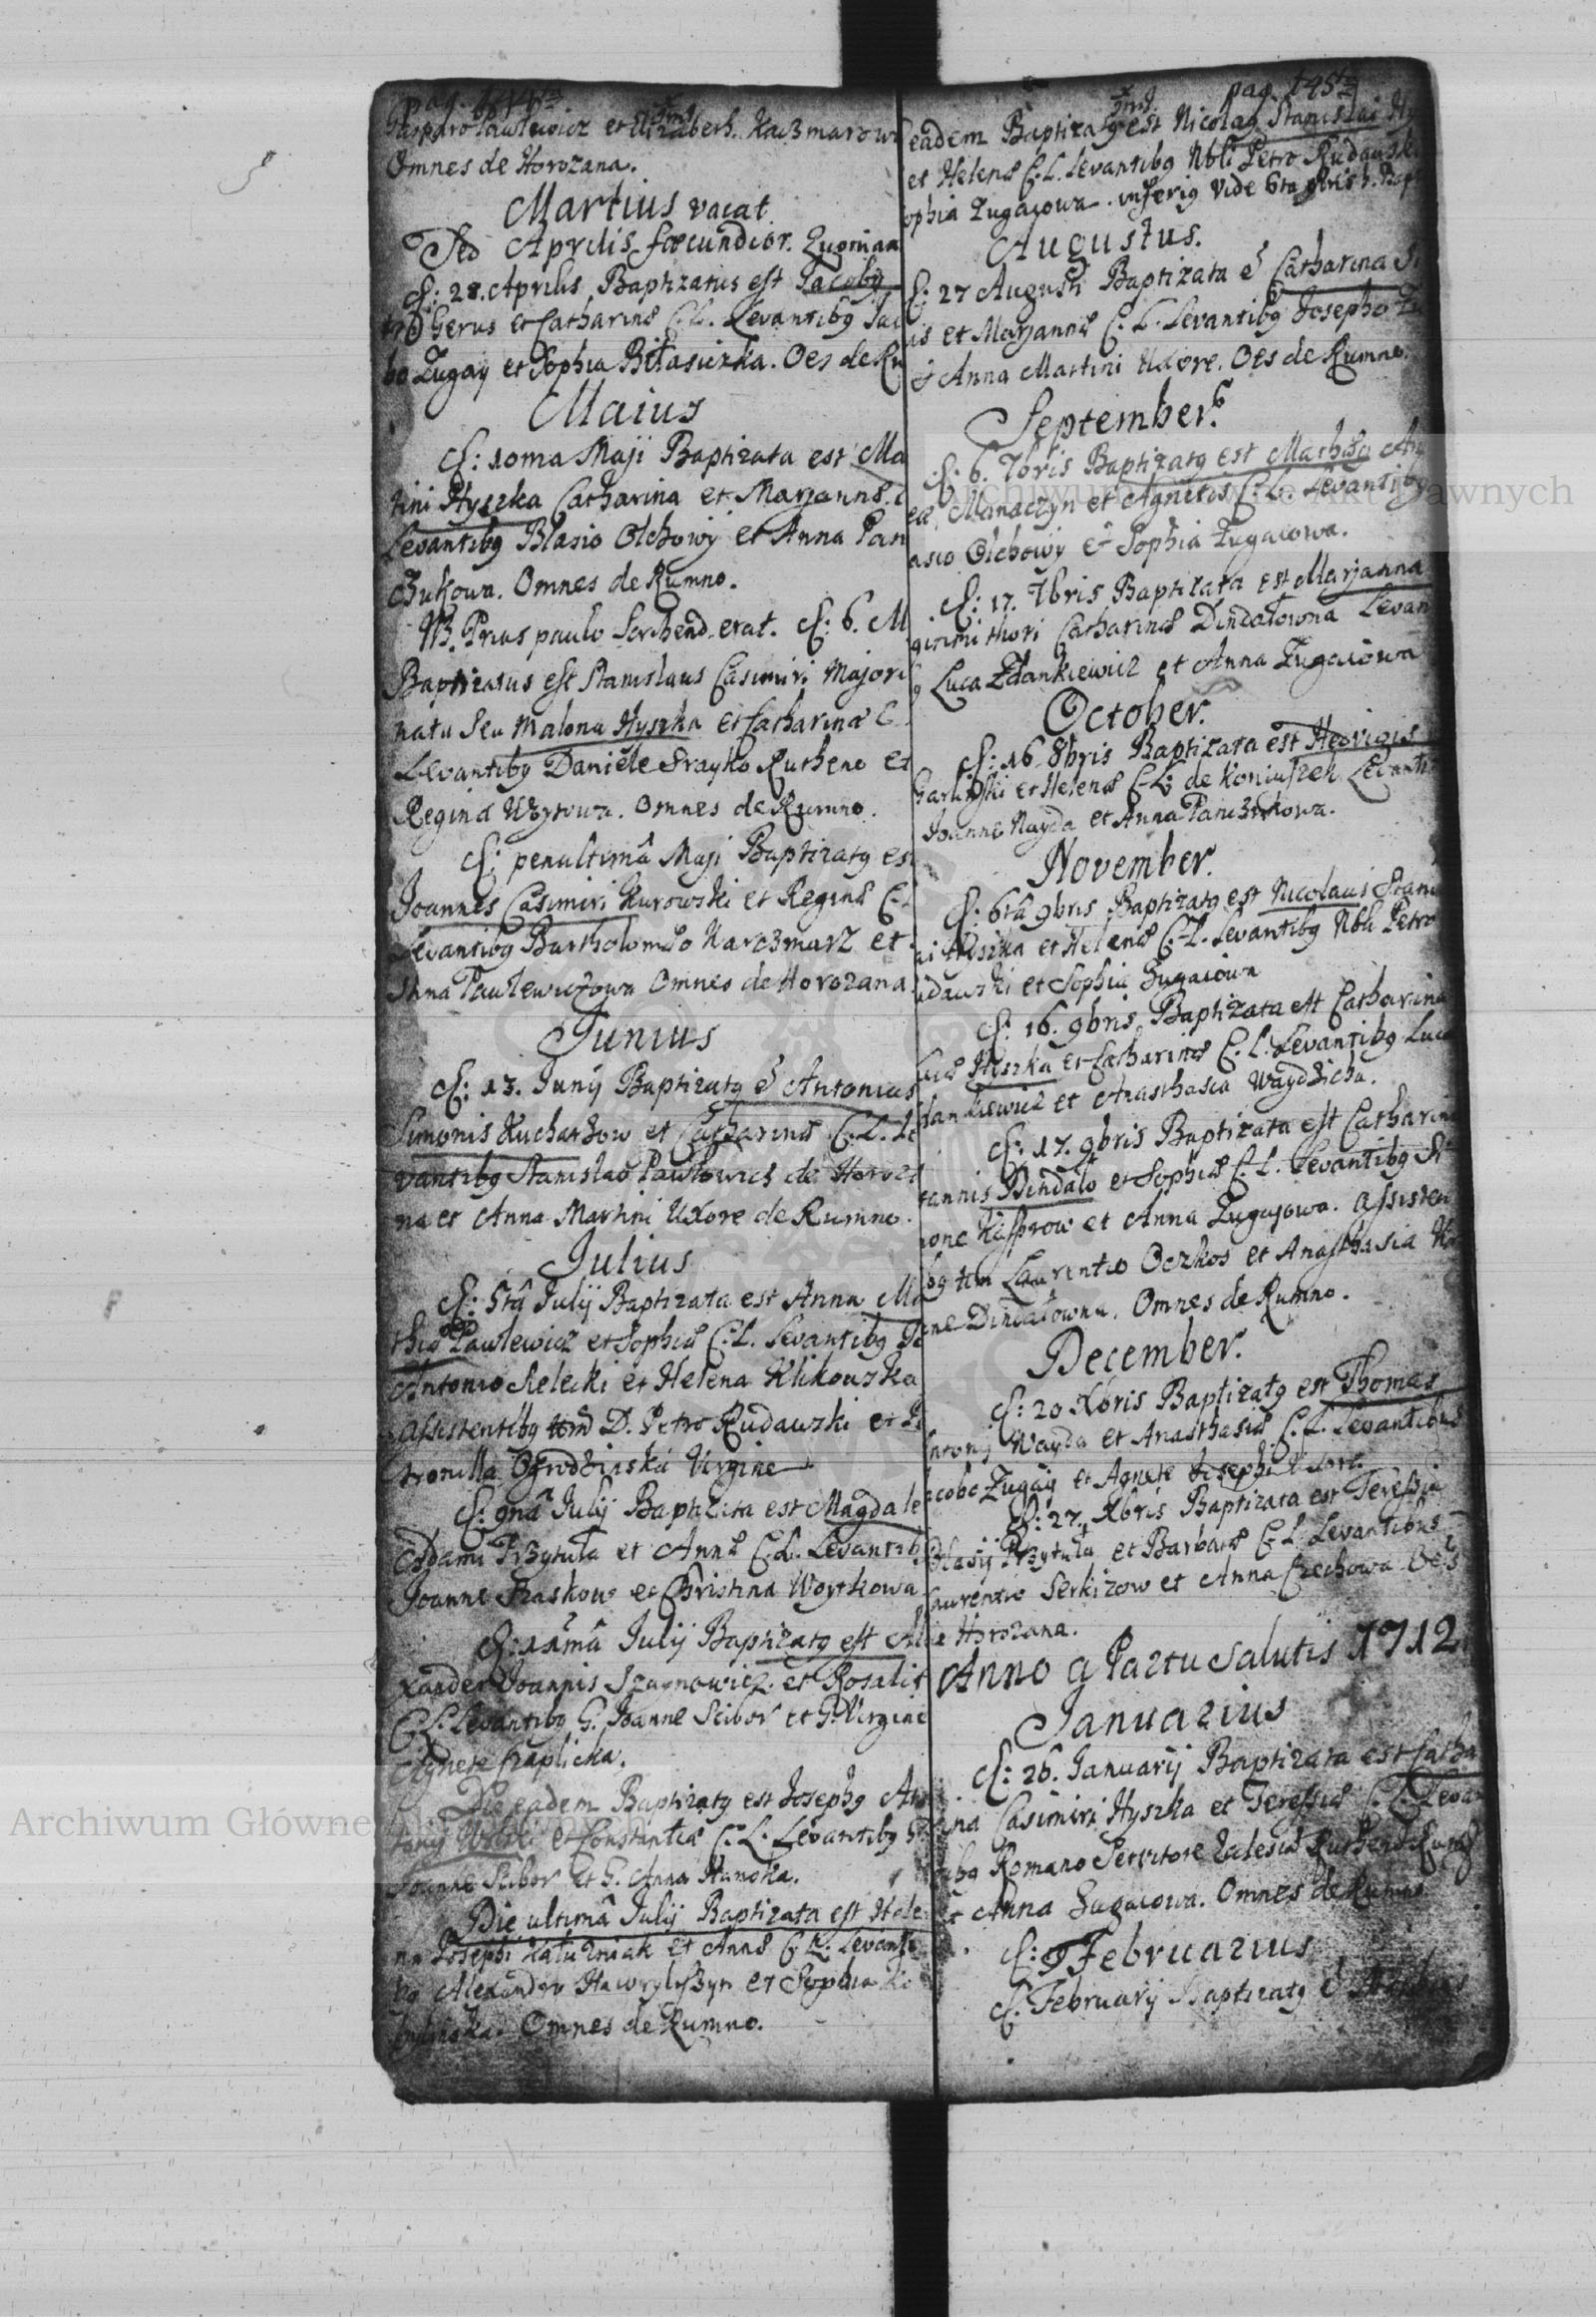 pag. 144
Gasparo Pawlewicz et Elizabeth. Kaczmarow
Omnes de Horozana.
Martius vacat
Sed Aprilis foecundior.
D: 28. Aprilis Baptizatus est Jacobg
Gerus et Catharinæ C. L. Levantibg Jac
bo Zugay et Sophia Bilasiczka. Oes de Ru
Maius
D: 10ma Maji Baptizata est Ma
tini Hyszka Catharina et Marjannæ C
Levantibg Blasio Olchowij et Anna Pan
czukowa. Omnes de Rumno.
NB. Prius paulo Scribend. erat. D: 6. M
Baptizatus est Stanislaus Casimiri Majori
natu seu Malona Hyszka et Catharinæ C.
Levantibg Daniele Srayko Rutheno et
Regina Wzytowa. Omnes de Rumno.
D: penultimâ Maji Baptizatg est
Joannes Casimiri Kurowski et Reginæ C.
Levantibg Bartholomæo Karczmarz et
Anna Pawlewiczowa Omnes de Horozana
Junius
D: 13. Junij Baptizatg ē Antonius
Simonis Kucharzow et Catharinæ C. L. Le
vantibg Stanislao Pawłowicz de Horoz
na et Anna Martini Uxore de Rumno.
Julius
D: 5tâ Julij Baptizata est Anna Ma
thiæ Pawlewicz et Sophiæ C. L. Levantibg
Antonio Sielecki et Helena Klikowska
Assistentibg D. Petro Rudawski et Pe
tronilla Ogrodzinska Virgine
D: 9nâ Julij Baptizata est Magdale
Adami Przytuła et Annæ C. L. Levantib
Joanne Staskow et Christina Woytkowa
D: 11mâ Julij Baptizatg est Ale
xander Joannis Szaynowicz et Rosaliæ
C L. Levantibg G. Joanne Scibor et G. Virgine
Agnete Czaplicka.
Die eadem Baptizatg est Josephg An
tonij Wilski et Constantiæ C. L. Levantibg G
Joanne Scibor et G. Anna Hanska.
Die ultimâ Julij Baptizata est Hele
na Josephi Kałuzniak et Annæ C. L. Levanti
bg Alexandro Hawryłyszyn et Sophia Ko
Omnes de Rumno.
pag. 145
eadem Baptizatg est Nicolag Stanislai Hy
et Helenæ C. L. Levantibg Nbli Petro Rudawski
ophia Zugajowa. inferig vide 6ta 9bris h. Bap
Augustus.
D: 27 Augusti Baptizata ē Catharina
is et Marjannæ C. L. Levantibg Josepho
& Anna Martini Uxore. Oes de Rumno.
September.
D: 6. 7bris Baptizatg est Mathæg An
eæ Manaczyn et Agnetis C. L. Levantibg
asio Olchowij & Sophia Zugaiowa.
D: 17. 7bris Baptizata est Marjanna
gitimi thori Catharinæ Dindałowna Levan
g Luca Zdankiewicz et Anna Zugaiowa
October.
D: 16 8bris Baptizata est Hedvigis
Garlinski et Helenæ C. L. de Koniuszek Levanti
Joanne Nayda et Anna Panczukowa.
November.
D: 6tâ 9bris Baptizatg est Nicolaus Stani
ai Hyszka et Helenæ C. L. Levantibg Nbli Petro
udawski et Sophia Zugaiowa
D: 16. 9bris Baptizata est Catharina
ucæ Hyszka et Catharinæ C. L. Levantibg Luca
dankiewicz et Anasthasia Waydzicha.
D: 17. 9bris Baptizata est Catharina
oannis Dindało et Sophiæ C. L. Levantibg Si
mone Kasprow et Anna Zugajowa. Assisten
bg tm Laurentio Oczkos et Anasthasia
Dindałowna. Omnes de Rumno.
December.
D: 20 Xbris Baptizatg est Thomas
Antonij Wayda et Anasthasiæ C. L. Levantibus
acobo Zugay et Agnete Josephi Uxore.
D: 27. Xbris Baptizata est Teressia
Blasij Przytuła et Barbaræ C. L. Levantibus
Laurentio Serkizow et Anna Czechowa Oes
de Horozana.
Anno a Partu Salutis 1712
Januarius
D: 26. Januarij Baptizata est Catha
rina Casimiri Hyszka et Teressiæ C. L. Levan
tibg Romano Servitore Eclesiæ Ruthenæ Rumn
et Anna Zugaiowa. Omnes de Rumno
Februarius
D. Februarij Baptizatg ē
Archiwum Główne Akt Dawnych
Archiwum Główne Akt Dawnych